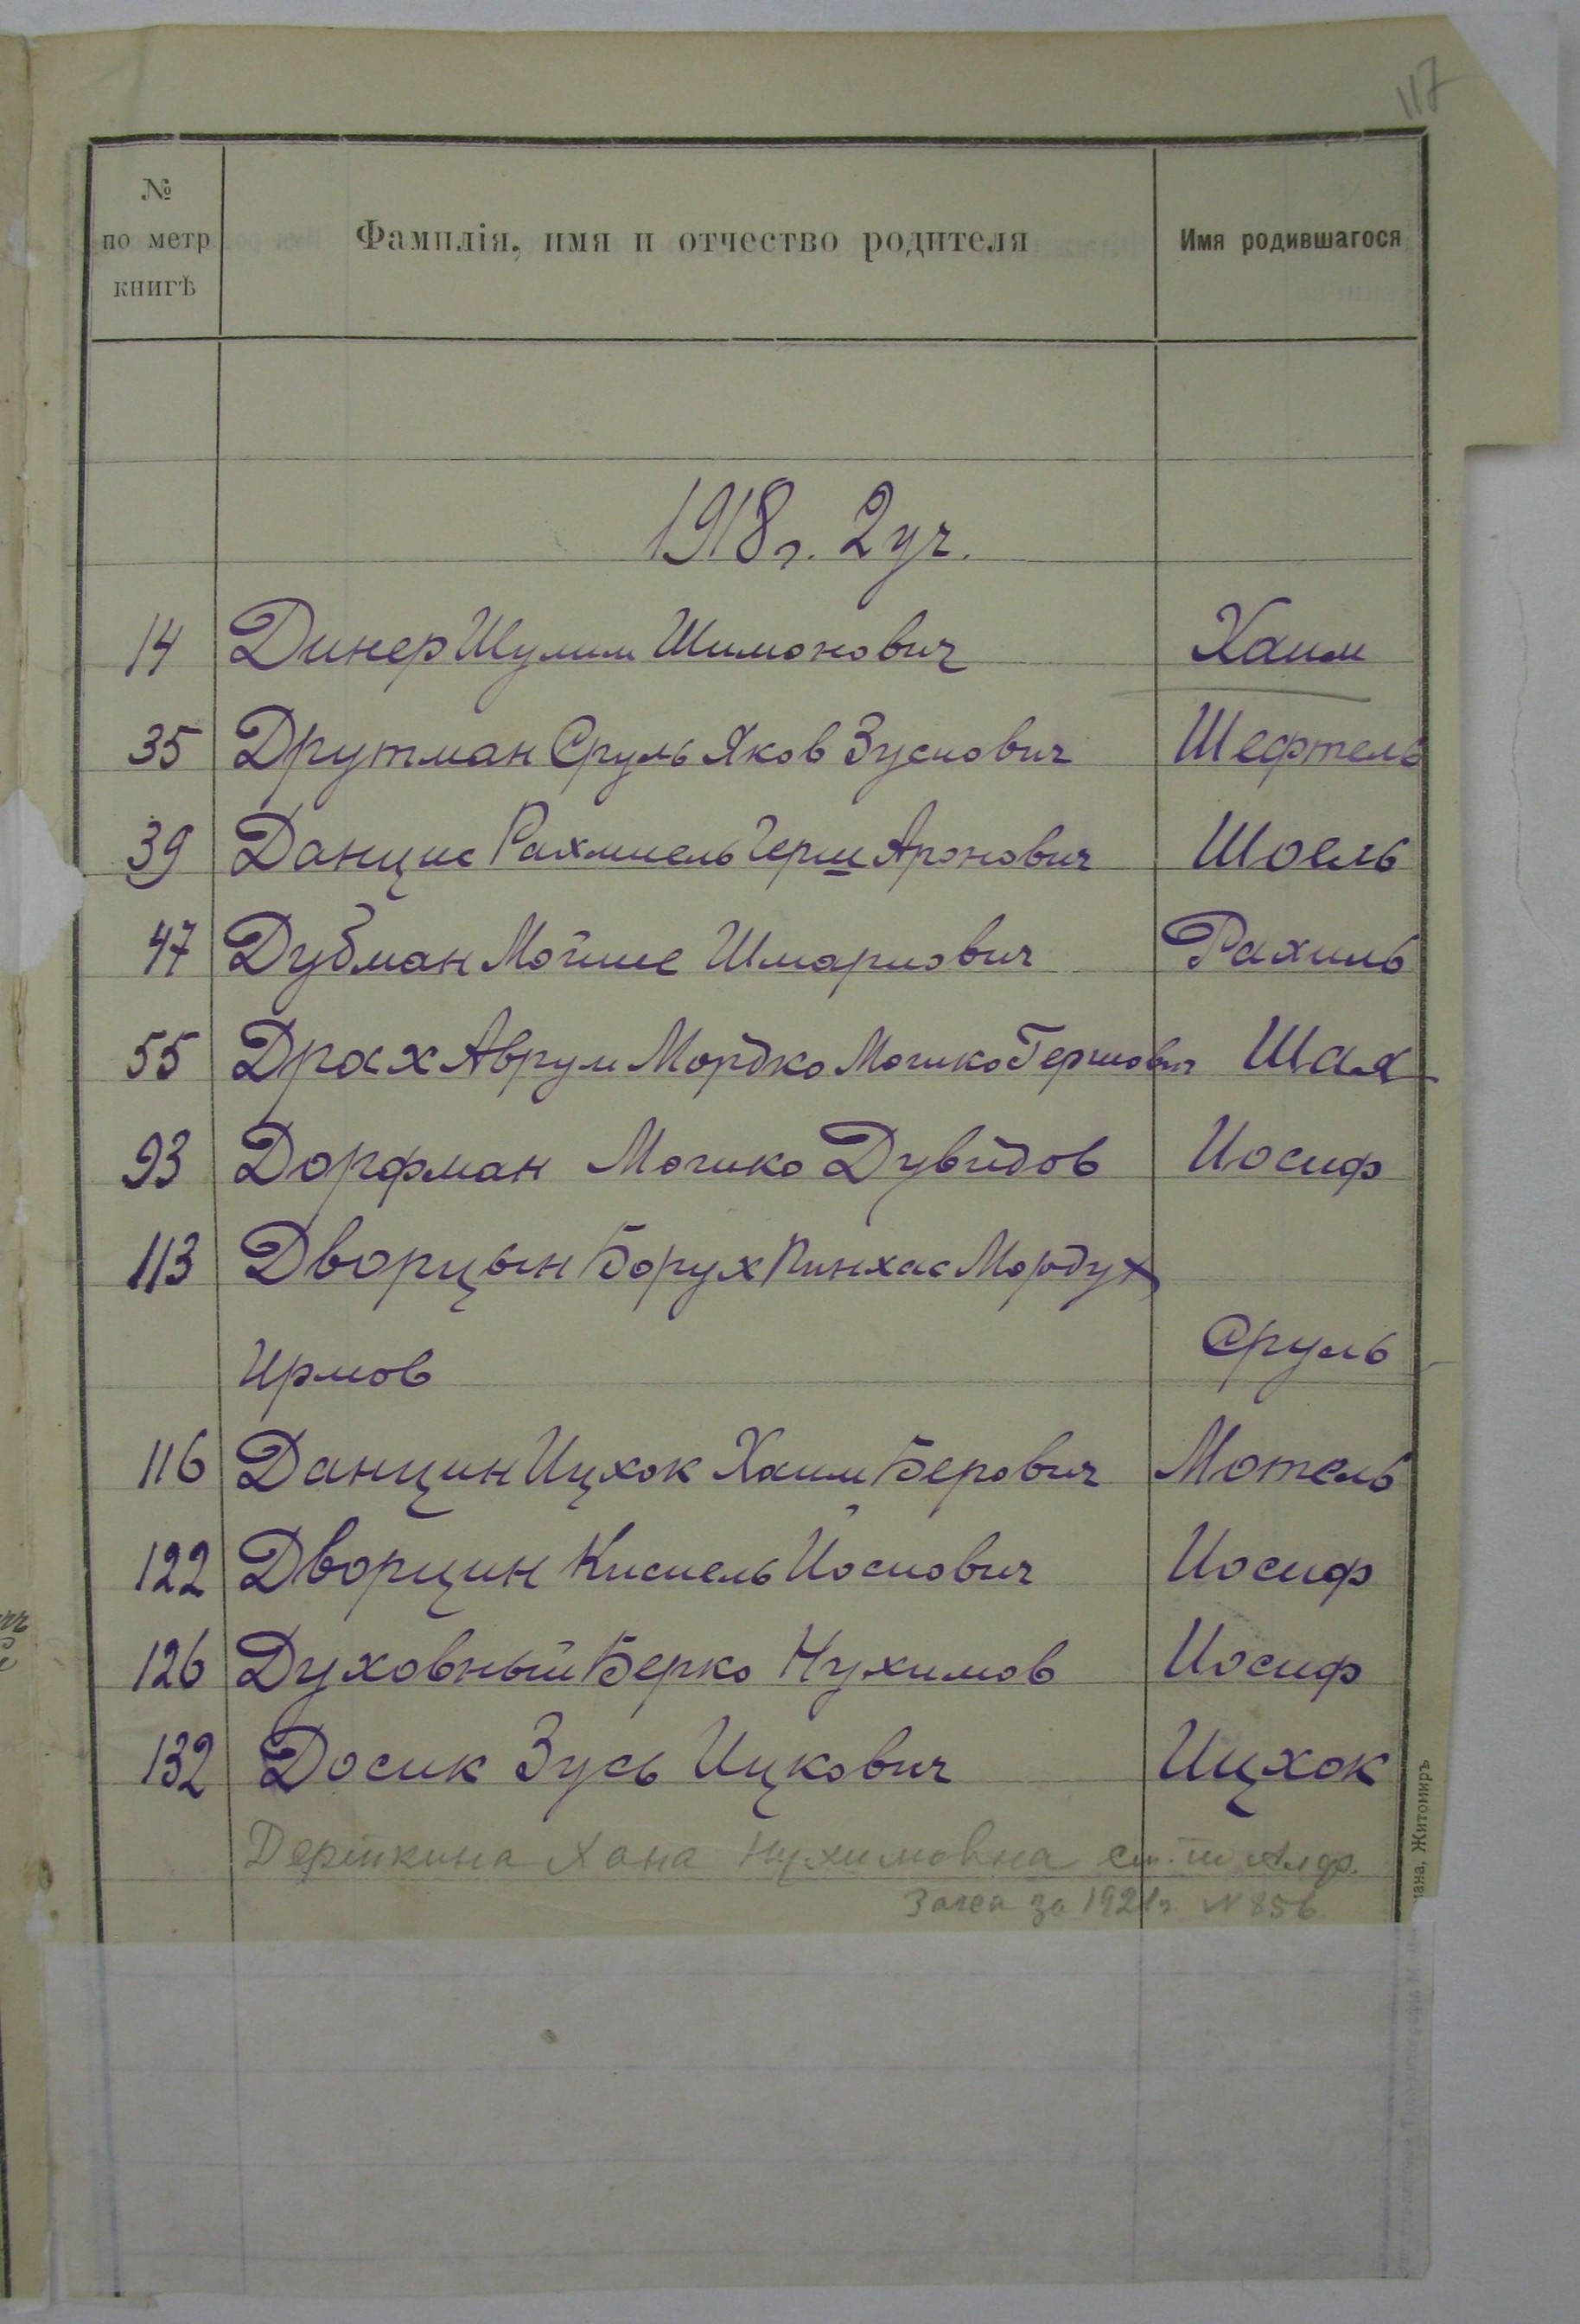 117
№
по метр.
книгѣ
Фамилія, имя и отчество родителя
Имя родившагося
1918 г. 2 уч.
14 Динер Шулим Шимонович Хаим
35 Друтман Сруль Яков Зусиович Шефтель
39 Данцис Рахмиель Герш Аронович Шоель
47 Дубман Мойше Шмариович Рахиль
55 Драх Аврум Мордко Мошко Гершович Шая
93 Дорфман Мошко Дувидов Иосиф
113 Дворцын Борух Пинхас Мордух
Ирмов Сруль
116 Данцин Ицхок Хаим Берович Мотель
122 Дворцин Кисиель Иосиович Иосиф
126 Духовный Берко Нухимов Иосиф
132 Досик Зусь Ицкович Ицхок
Хана Нухимовна см.
Загса за 1921 г. N 856
Житомиръ